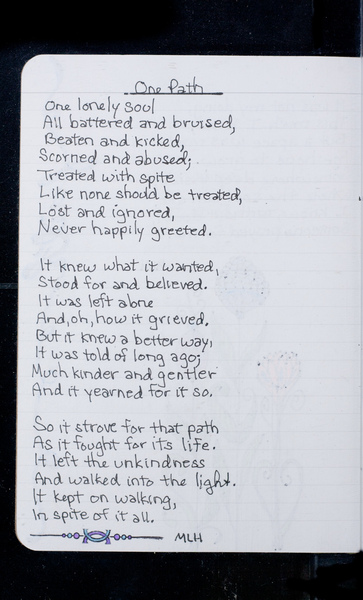 One Path
One lonely soul
All battered and bruised,
Beaten and kicked,
Scorned and abused;
Treated with spite
Like none should be treated,
Lost and ignored,
Never happily greeted.
It knew what it wanted,
Stood for and believed.
It was left alone
And, oh, how it grieved.
But it knew a better way,
It was told of long ago;
Much kinder and gentler
And it yearned for it so.
So it strove for that path
As it fought for its life.
It left the unkindness
And walked into the light.
It kept on walking,
In spite of it all.
MLH